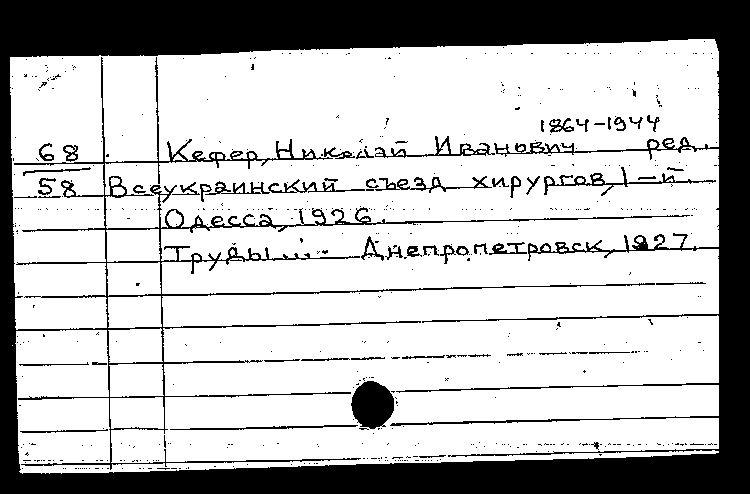 1864-1944
68 Кефер, Николай Иванович ред.
58 Всеукраинский съезд хирургов, 1-й.
Одесса, 1926.
Труды... Днепропетровск, 1927.